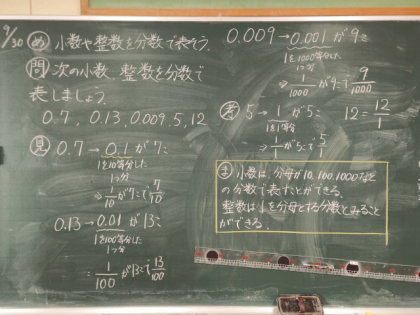 9/30 め 小数や整数を分数で表そう。
問 次の小数、整数を分数で
表しましょう。
0.7, 0.13, 0.009, 5, 12
見 0.7→0.1が7こ
1を10等分した
1つ分
⇒ 1/10が7こで 7/10
0.13→0.01が13こ
1を100等分した
1つ分
= 1/100が13こで 13/100
0.009→0.001が9こ
1を1000等分した
1つ分
⇒ 1/1000が9こで 9/1000
考 5→1が5こ 12=12/1
1を1等分
⇒ 1/1が5こで 5/1
ま 小数は、分母が10,100,1000など
の分数で表すことができる。
整数は1を分母とする分数とみること
ができる。